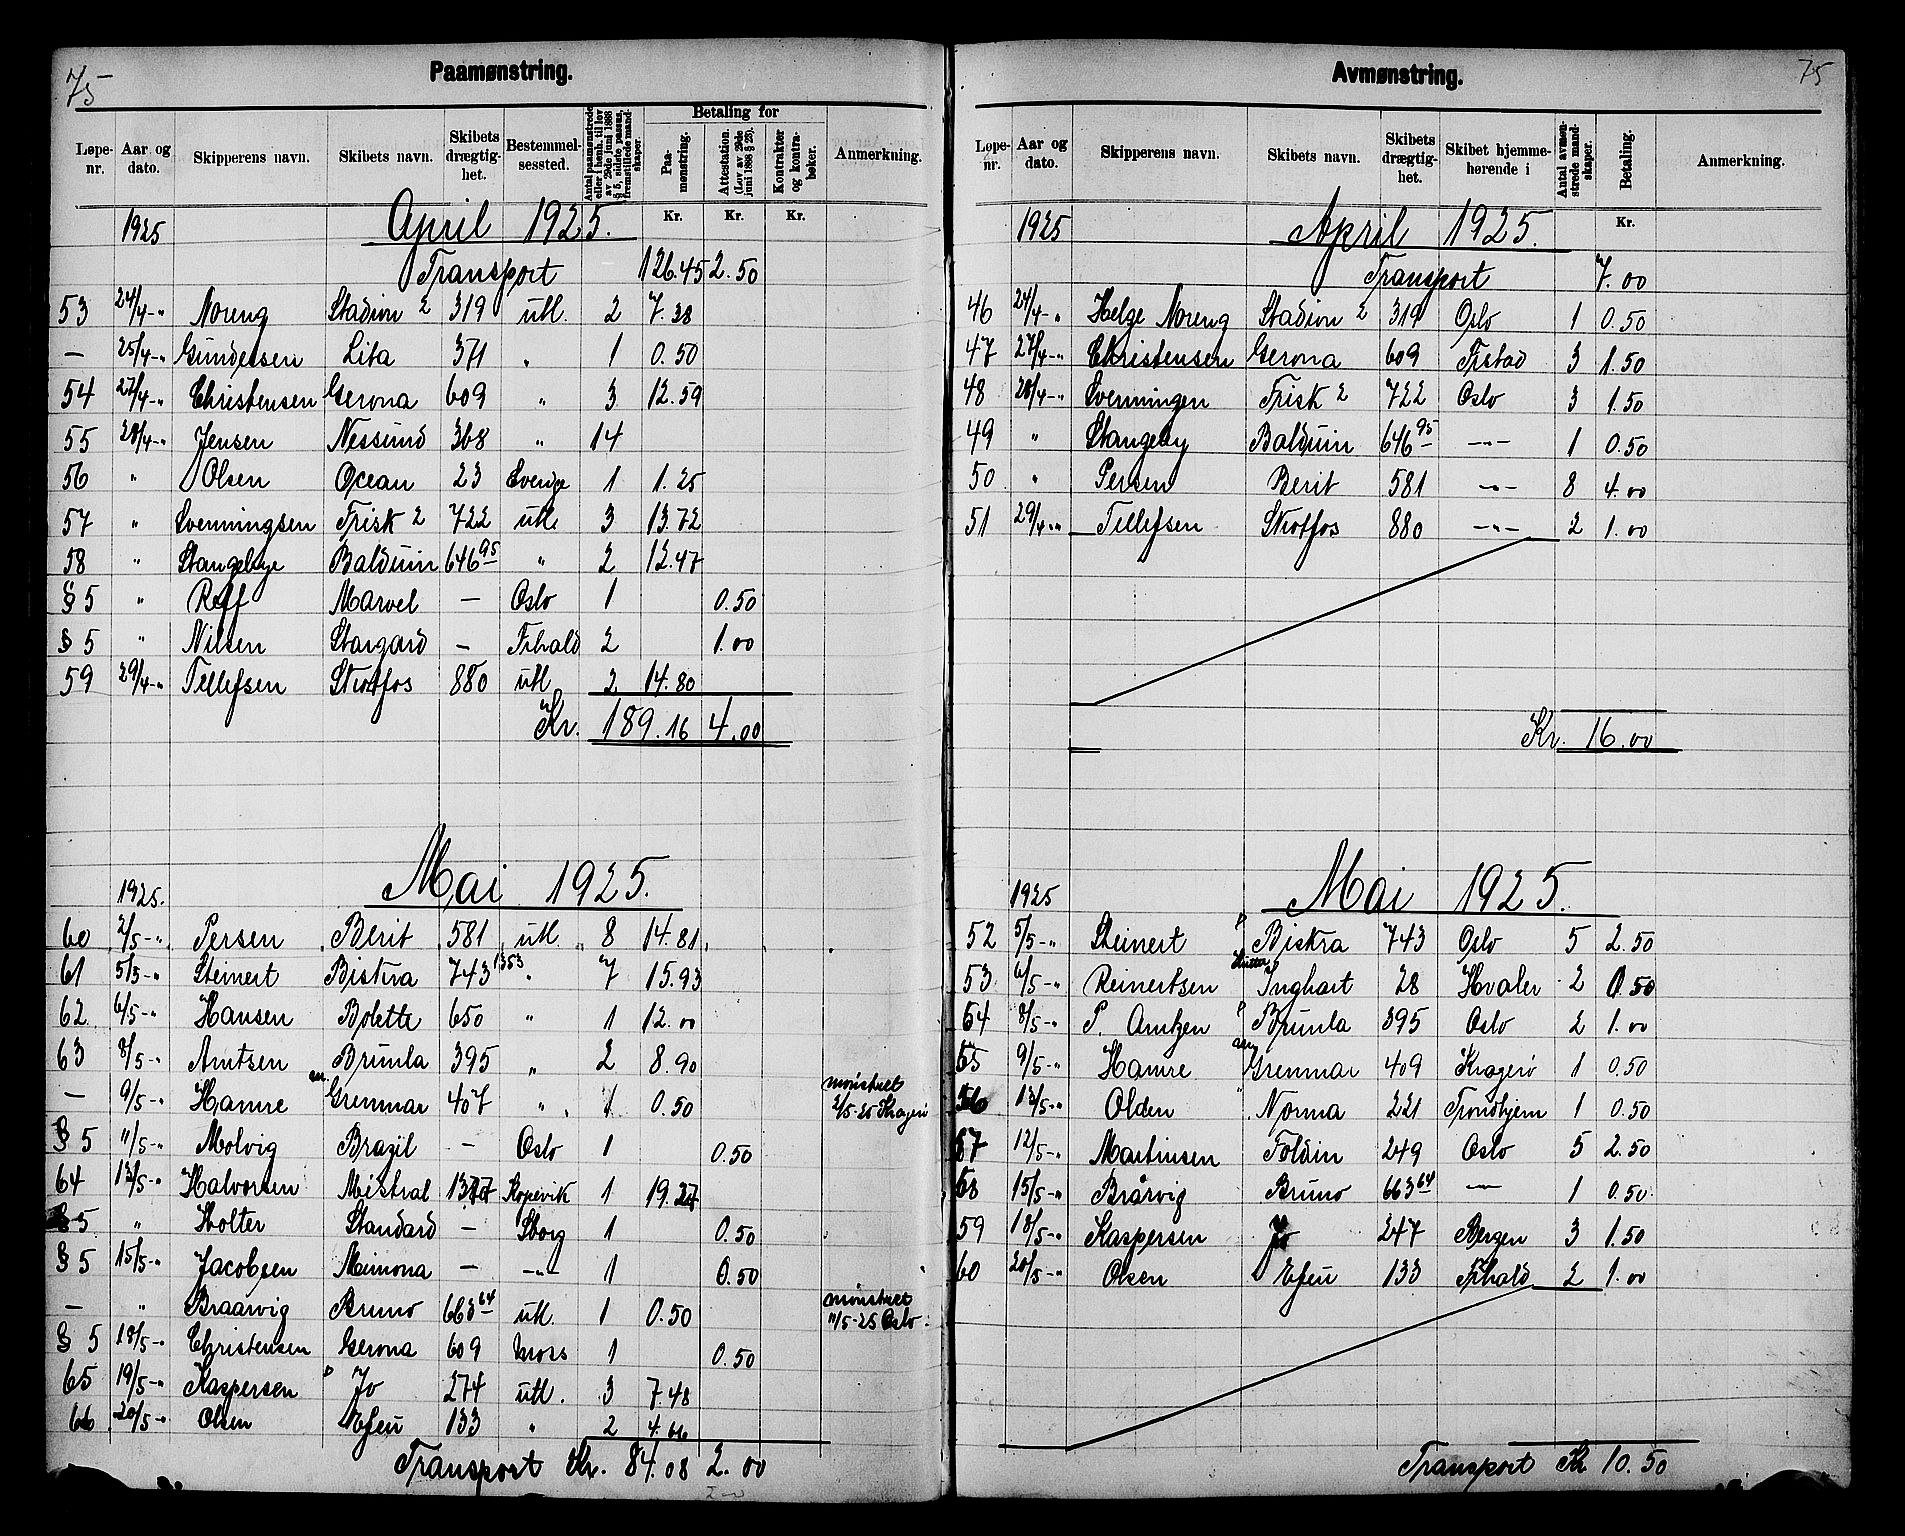 75
Paamønstring.
Løpe-nr. Aar og dato. Skipperens navn. Skibets navn. Skibets drægtig-het. Bestemmel-sessted. Antal paamønstrede eller i henh. til lov av 29de juni 1888 § 5, sidste passus, fremstillede mand-skaper. Betaling for Paa-mønstring. Attestation. (Lov av 29de juni 1888 § 23). Kontrakter og kontra-bøker. Anmerkning.
Kr. Kr. Kr.
1925 April 1925.
Transport 126.45 2.50
53 24/4-" Noreng Stadion 2 319 utl. 2 7.38
— 25/4-" Gundersen Lita 371 " 1 0.50
54 27/4-" Christensen Gerona 609 " 3 12.59
55 28/4-" Jensen Nessund 368 " 14
56 " Olsen Ocean 23 Sverige 1 1.25
57 " Svenningsen Frisk 2 722 utl. 3 13.72
58 " Stangebye Balduin 646 95 " 2 12.47
§ 5 " Reff Marvel — Oslo 1 0.50
§ 5 " Nilsen Stargard — Frhald 2 1.00
59 29/4-" Tellefsen Skotfos 880 utl 2 14.80
Kr. 189.16 4.00
Mai 1925.
1925.
60 2/5-" Persen Berit 581 utl. 8 14.81
61 5/5-" Steinert Biskra 743 1353 " 7 15.93
62 6/5-" Hansen Bolette 650 " 1 12.00
63 8/5-" Arntsen Brumla 395 " 2 8.90
— 9/5-" Hamre Grenmar 407 " 1 0.50 mønstret 2/5-25 Kragerø
§ 5 11/5-" Molvig Brazil — Oslo 1 0.50
64 13/5-" Halvorsen Mistral 1377 Kopervik 1 19.27
§ 5 " Holter Standard — Sborg 1 0.50
§ 5 15/5-" Jacobsen Mimona — -"- 1 0.50
— " Braarvig Bruno 663 64 utl. 1 0.50 mønstret 11/5-25 Oslo
§ 5 18/5-" Christensen Gerona 609 Moss 1 0.50
65 19/5-" Kaspersen Jo 274 utl. 3 7.48
66 20/5-" Olsen Efeu 133 " 2 4.66
Transport Kr. 84.08 2.00
75
Avmønstring.
Løpe-nr. Aar og dato. Skipperens navn. Skibets navn. Skibets drægtig-het. Skibet hjemme-hørende i Antal avmøn-strede mand-skaper. Betaling. Anmerkning.
Kr.
1925 April 1925.
Transport 7.00
46 24/4-" Helge Noreng Stadion 2 319 Oslo 1 0.50
47 27/4-" Christensen Gerona 609 Frstad 3 1.50
48 28/4-" Svenningen Frisk 2 722 Oslo 3 1.50
49 " Stangeby Balduin 646 95 -"- 1 0.50
50 " Persen Berit 581 -"- 8 4.00
51 29/4-" Tellefsen Skotfos 880 -"- 2 1.00
Kr. 16.00
Mai 1925.
1925
52 5/5-" Steinert Biskra 743 Oslo 5 2.50
53 6/5-" Reinertsen Kutter Inghart 28 Hvaler 2 0.50
54 8/5-" P. Arntzen Brumla 395 Oslo 2 1.00
55 9/5-" Hamre Grenmar 409 Kragerø 1 0.50
56 12/5-" Olden Norma 221 Trondhjem 1 0.50
57 12/5-" Martinsen Foldin 249 Oslo 5 2.50
58 15/5-" Brårvig Bruno 663 64 -"- 1 0.50
59 18/5-" Kaspersen Jo 247 Bergen 3 1.50
60 20/5-" Olsen Efeu 133 Frhald 2 1.00
Transport Kr 10.50